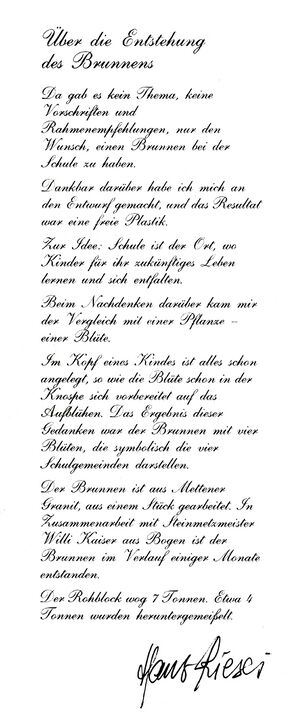 Über die Entstehung
des Brunnens
Da gab es kein Thema, keine
Vorschriften und
Rahmenempfehlungen, nur den
Wunsch, einen Brunnen bei der
Schule zu haben.
Dankbar darüber habe ich mich an
den Entwurf gemacht, und das Resultat
war eine freie Plastik.
Zur Idee: Schule ist der Ort, wo
Kinder für ihr zukünftiges Leben
lernen und sich entfalten.
Beim Nachdenken darüber kam mir
der Vergleich mit einer Pflanze –
einer Blüte.
Im Kopf eines Kindes ist alles schon
angelegt, so wie die Blüte schon in der
Knospe sich vorbereitet auf das
Aufblühen. Das Ergebnis dieser
Gedanken war der Brunnen mit vier
Blüten, die symbolisch die vier
Schulgemeinden darstellen.
Der Brunnen ist aus Mettener
Granit, aus einem Stück gearbeitet. In
Zusammenarbeit mit Steinmetzmeister
Willi Kaiser aus Bogen ist der
Brunnen im Verlauf einiger Monate
entstanden.
Der Rohblock wog 7 Tonnen. Etwa 4
Tonnen wurden heruntergemeißelt.
Hans